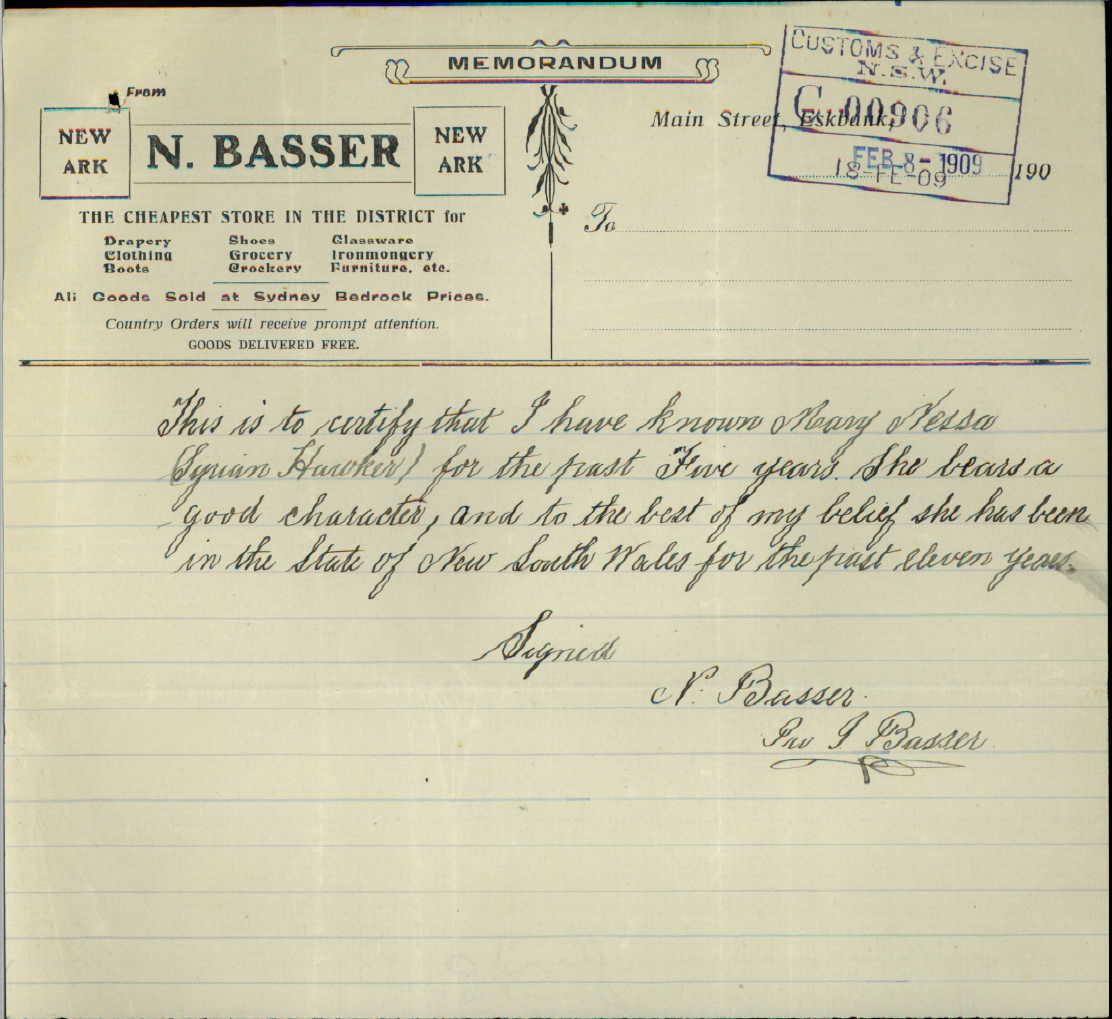 MEMORANDUM
CUSTOMS & EXCISE
N.S.W.
C 00906
FEB 8 - 1909
18-FE-09
From
NEW
ARK
N. BASSER
NEW
ARK
Main Street, Eskbank,
190
THE CHEAPEST STORE IN THE DISTRICT for
Drapery Shoes Glassware
Clothing Grocery Ironmongery
Boots Crockery Furniture, etc.
All Goods Sold at Sydney Bedrock Prices.
Country Orders will receive prompt attention.
GOODS DELIVERED FREE.
To
This is to certify that I have known Mary Nessa
(Syrian Hawker) for the past Five years. She bears a
good character, and to the best of my belief she has been
in the State of New South Wales for the past eleven years.
Signed
N. Basser.
J Basser